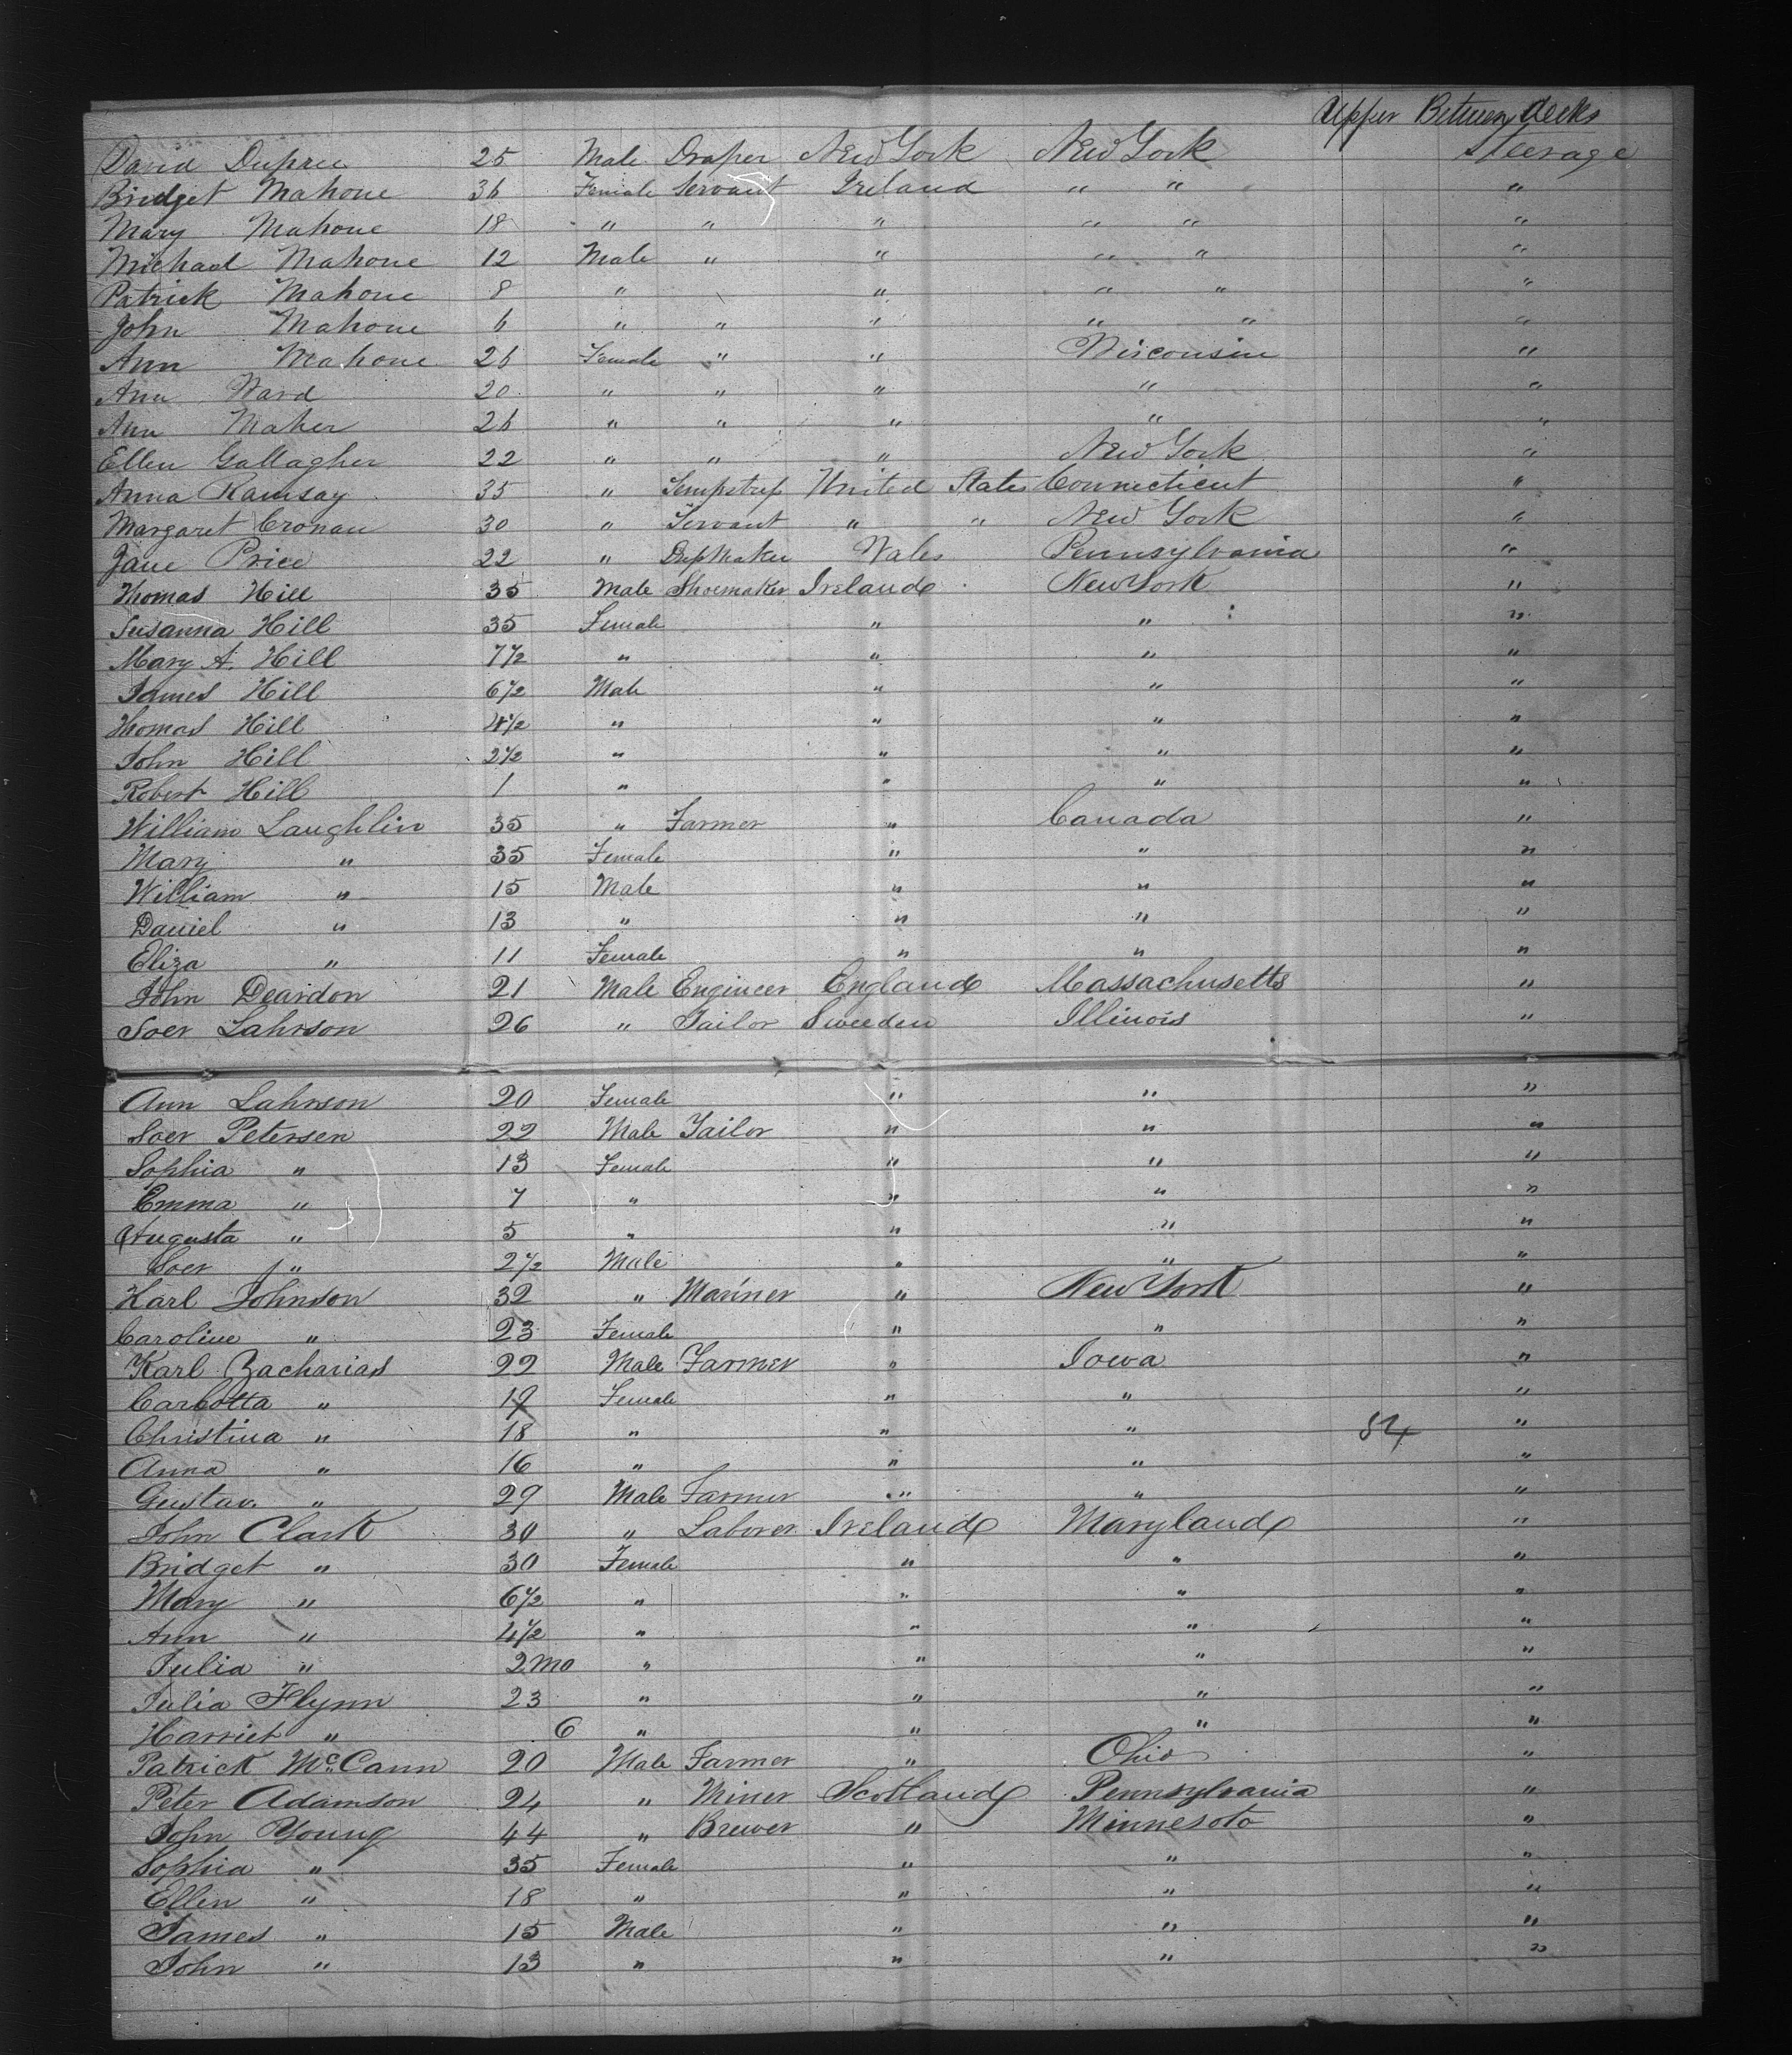 Upper Between decks
David Dupree 25 Male Draper New York New York Steerage
Bridget Mahone 36 Female Servant Ireland " " "
Mary Mahone 18 " " " " " "
Michael Mahone 12 Male " " " " "
Patrick Mahone 8 " " " " "
John Mahone 6 " " " " " "
Ann Mahone 26 Female " " Wisconsin "
Ann Ward 20 " " " " "
Ann Maher 26 " " " " "
Ellen Gallagher 22 " " " New York "
Anna Ramsay 35 " Sempstress United States Connecticut "
Margaret Cronan 30 " Servant " " New York "
Jane Price 22 " DressMaker Wales Pennsylvania "
Thomas Hill 35 Male Shoemaker Ireland New York "
Susanna Hill 35 Female " " "
Mary A. Hill 7½ " " " "
James Hill 6½ Male " " "
Thomas Hill 4½ " " " "
John Hill 2½ " " " "
Robert Hill 1 " " " "
William Laughlin 35 " Farmer " Canada "
Mary " 35 Female " " "
William " 15 Male " " "
Daniel " 13 " " " "
Eliza " 11 Female " " "
John Deardon 21 Male Engineer England Massachusetts "
Soer Lahrson 26 " Tailor Sweeden Illinois "
Ann Lahrson 20 Female " " "
Soer Petersen 22 Male Tailor " " "
Sophia " 13 Female " " "
Emma " 7 " " " "
Augusta " 5 " " " "
Soer " 2½ Male " " "
Karl Johnson 32 " Mariner " New York "
Caroline " 23 Female " " "
Karl Zacharias 22 Male Farmer " Iowa "
Carlotta " 19 Female " " "
Christina " 18 " " " 54 "
Anna " 16 " " " "
Gustav. " 29 Male Farmer " " "
John Clark 30 " Laborer Ireland Maryland "
Bridget " 30 Female " " "
Mary " 6½ " " " "
Ann " 4½ " " " "
Julia " 2mo " " " "
Julia Flynn 23 " " " "
Harriet " 6 " " " "
Patrick McCann 20 Male Farmer " Ohio "
Peter Adamson 24 " Miner Scotland Pennsylvania "
John Young 44 " Brewer " Minnesota "
Sophia " 35 Female " " "
Ellen " 18 " " " "
James " 15 Male " " "
John " 13 " " " "